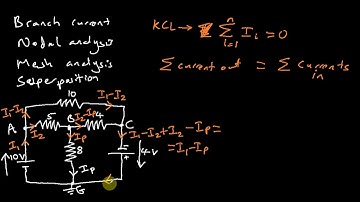 Branch current
Nodal analysis
Mesh analysis
Superposition
KCL → Σ Iᵢ = 0
n
i=1
Σ current out = Σ currents in
I₁-I₂
10
I₁-I₂
A
5
B
I₂-Iₚ
4
C
I₂
I₂
Iₚ
I₁
10V
8
Iₚ
4V
G
I₁-I₂+I₂-Iₚ=
=I₁-Iₚ